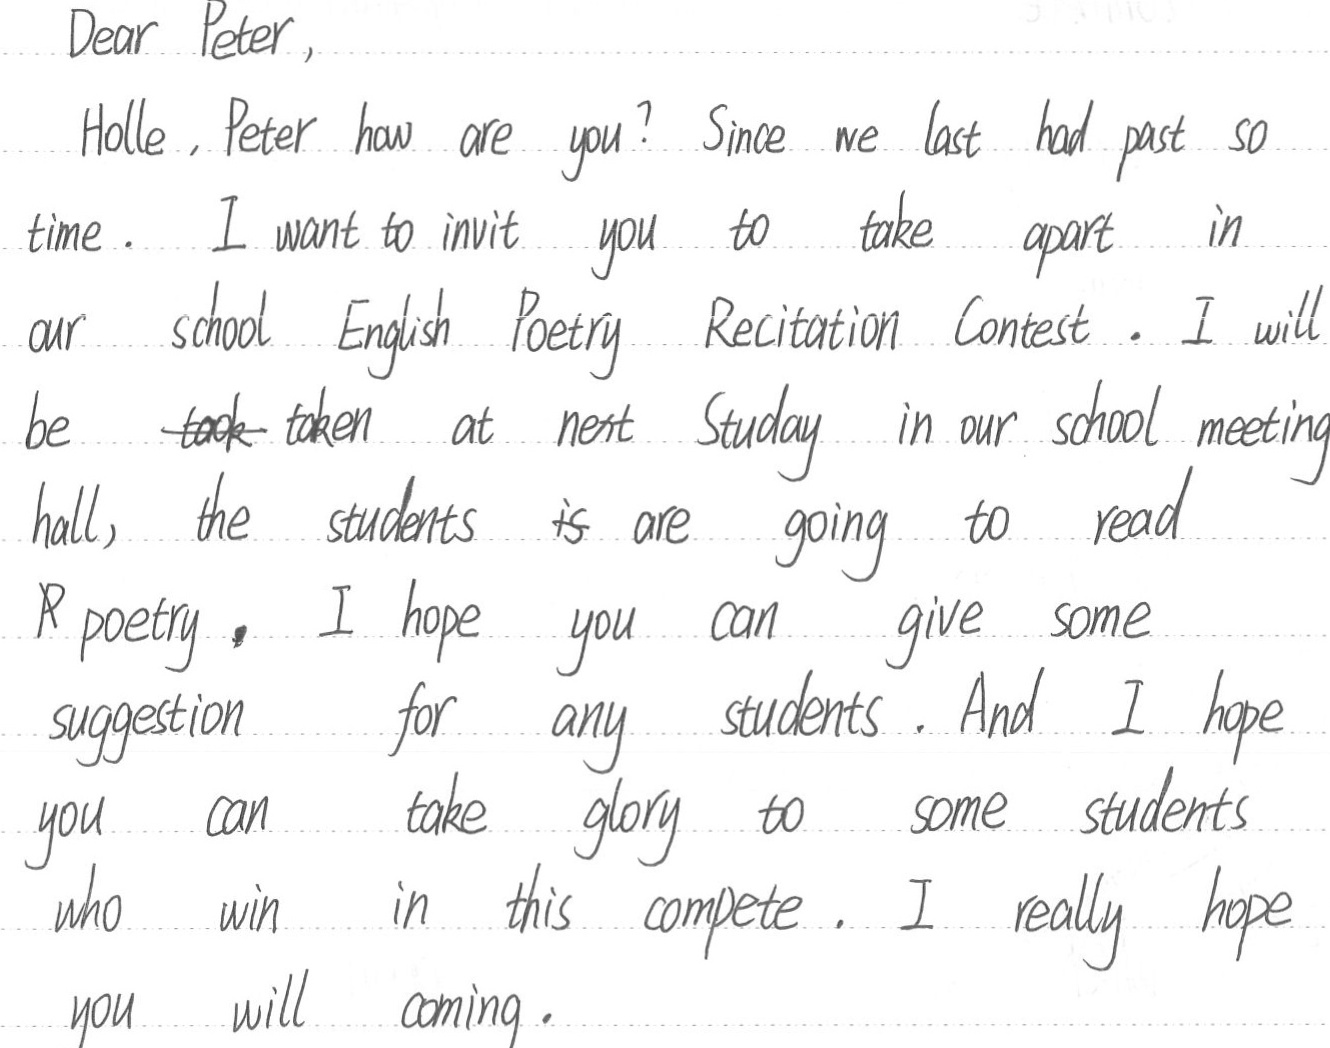 Dear Peter,
Holle, Peter how are you? Since we last had past so
time. I want to invit you to take apart in
our school English Poetry Recitation Contest. I will
be took taken at next Studay in our school meeting
hall, the students is are going to read
R poetry. I hope you can give some
suggestion for any students. And I hope
you can take glory to some students
who win in this compete. I really hope
you will coming.